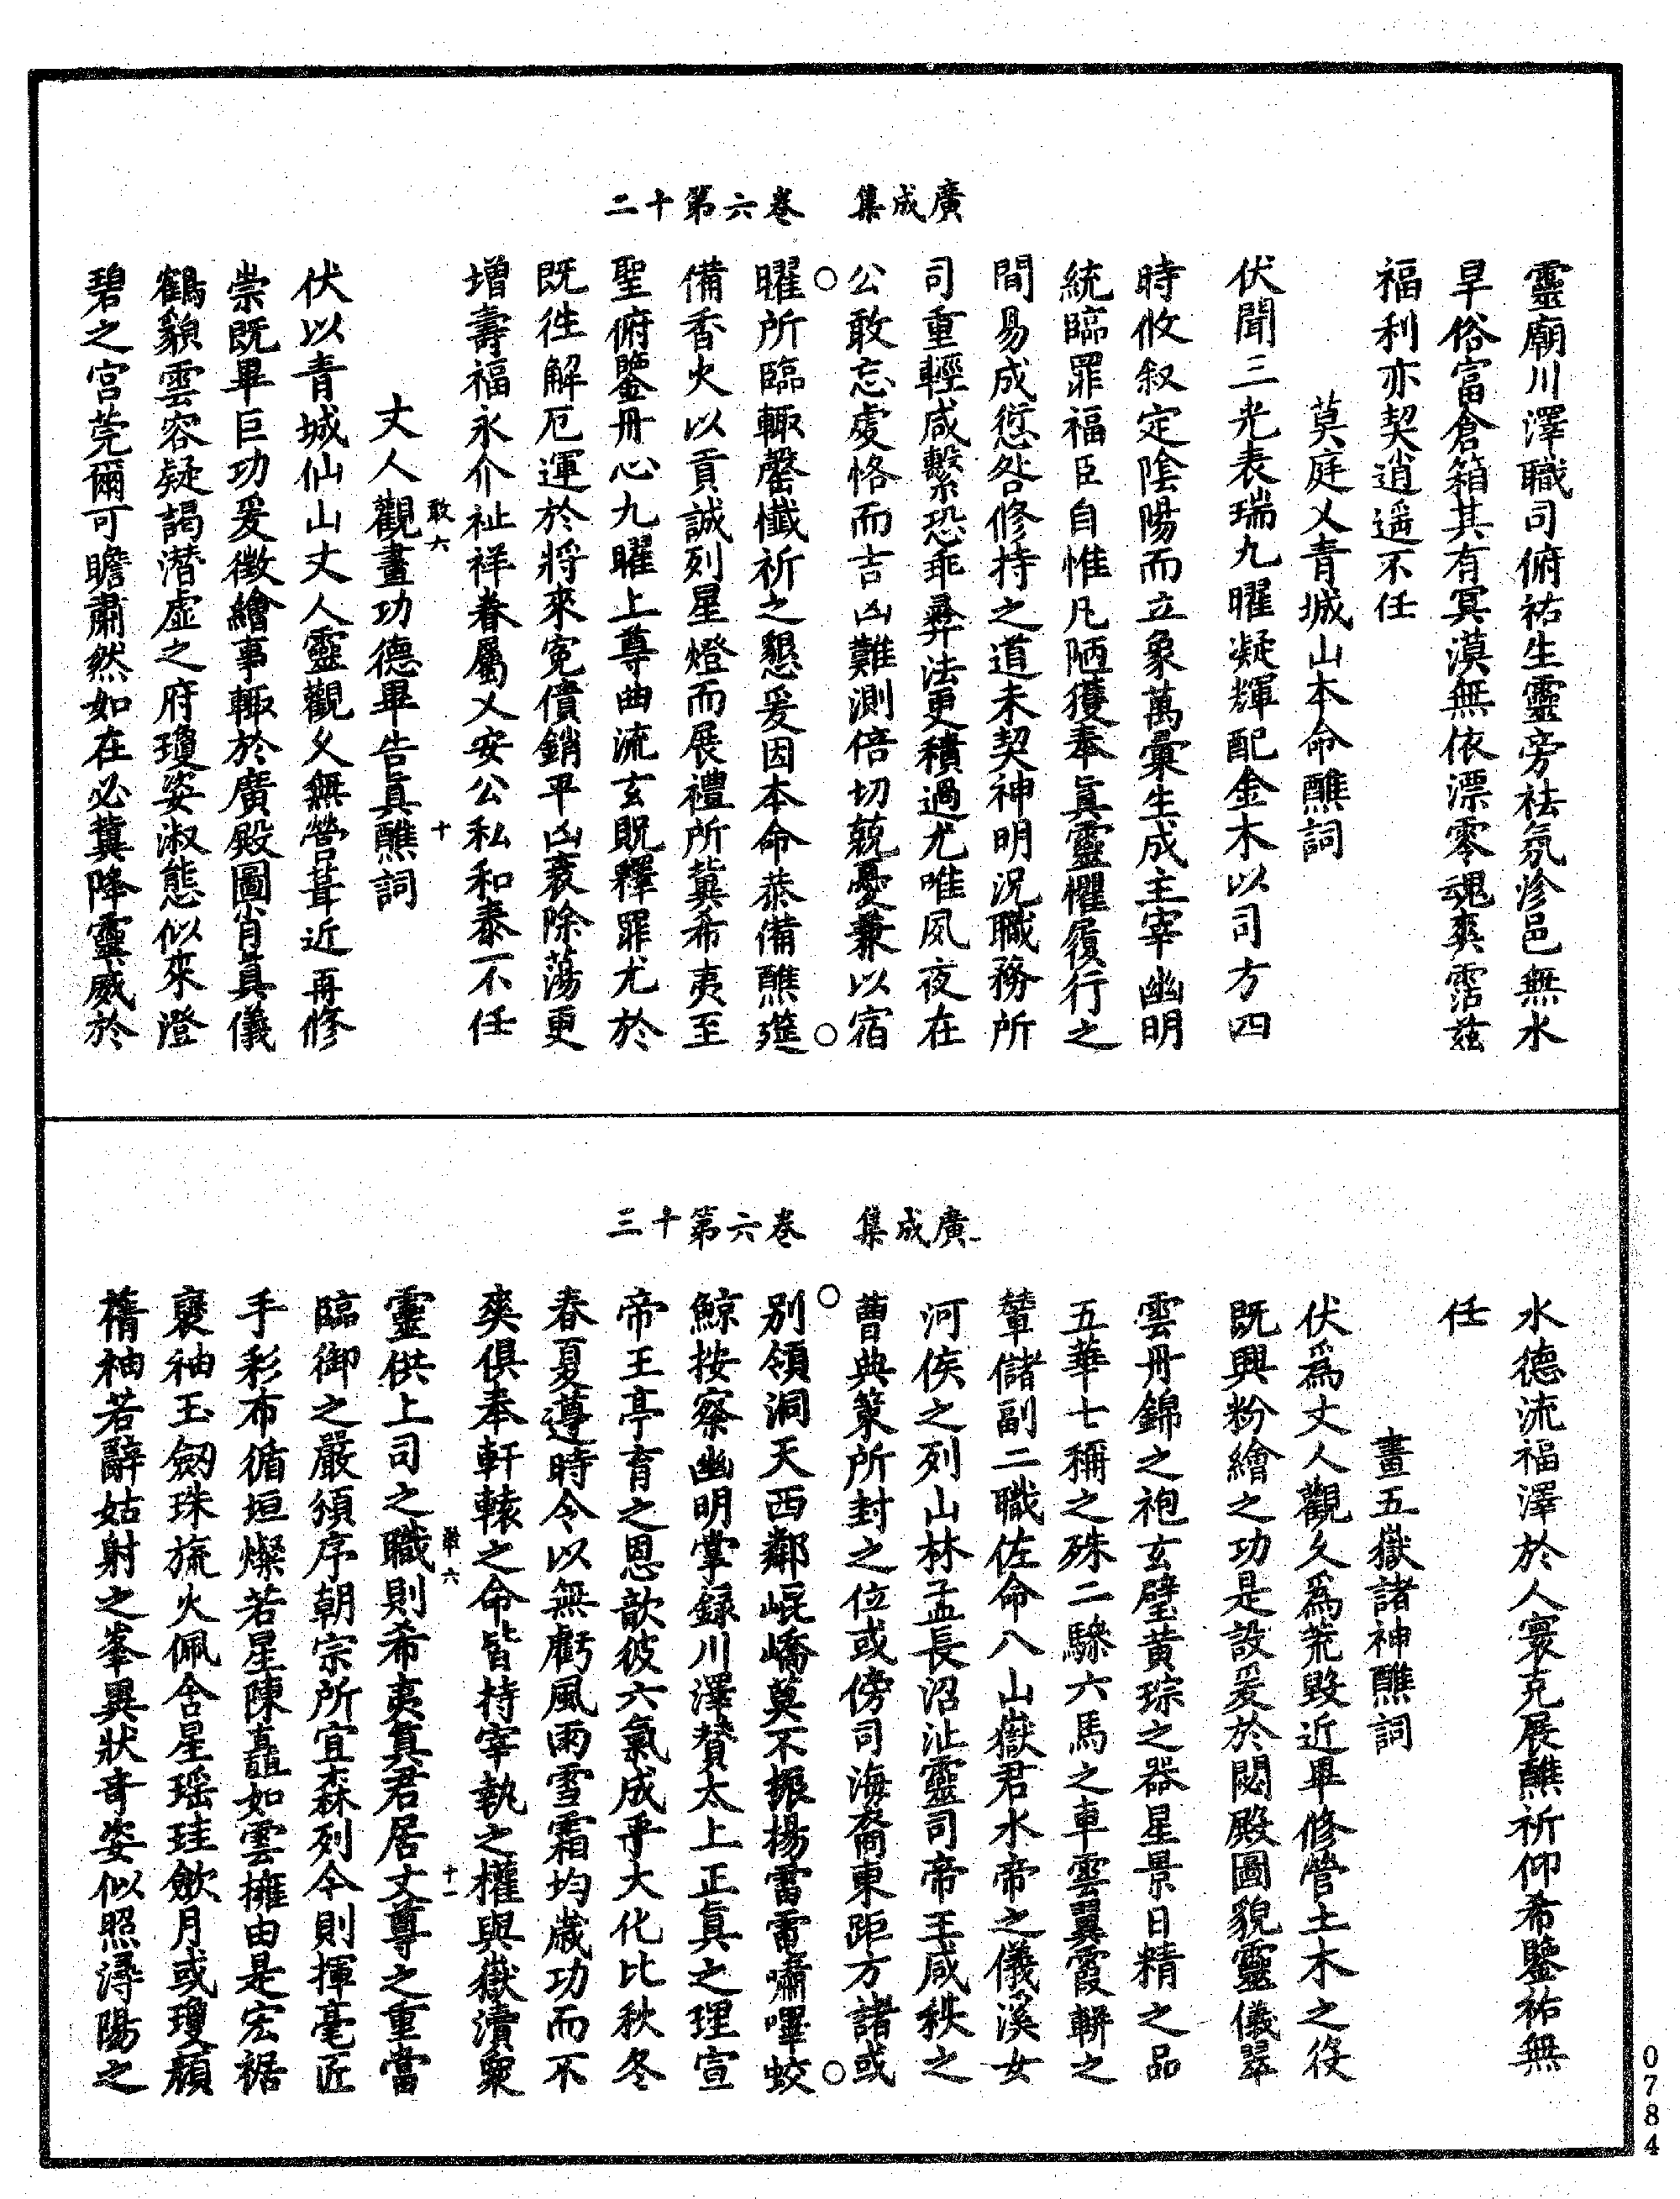 廣成集　卷六第十二
靈廟川澤職司俯祐生靈旁祛氛沴邑無水
旱俗富倉箱其有冥漠無依漂零魂爽霑茲
福利亦契逍遥不任
莫庭乂青城山本命醮詞
伏聞三光表瑞九曜凝輝配金木以司方四
時攸叙定陰陽而立象萬彙生成主宰幽明
統臨罪福臣自惟凡陋獲奉真靈懼履行之
間易成愆咎修持之道未契神明況職務所
司重輕咸繫恐乖彝法更積過尤唯夙夜在
公敢忘虔恪而吉凶難測倍切兢憂兼以宿
曜所臨輙罄懺祈之懇爰因本命恭備醮筵
備香火以貢誠列星燈而展禮所冀希夷至
聖俯鑒丹心九曜上尊曲流玄貺釋罪尤於
既徃解厄運於將來寃債銷平凶衰除蕩更
增壽福永介祉祥眷屬乂安公私和泰不任
丈人觀畫功德畢告真醮詞
敢六
十
伏以青城仙山丈人靈觀久無營葺近再修
崇既畢巨功爰徵繪事輙於廣殿圖肖真儀
鶴貌雲容疑謁潜虚之府瓊姿淑態似來澄
碧之宫莞爾可瞻肅然如在必冀降靈威於
廣成集　卷六第十三
水德流福澤於人寰克展醮祈仰希鑒祐無
任
畫五嶽諸神醮詞
伏爲丈人觀久爲荒毀近畢修營土木之役
既興粉繪之功是設爰於閟殿圖貌靈儀翠
雲丹錦之袍玄璧黄琮之器星景日精之品
五華七稱之殊二驂六馬之車雲翼霞軿之
輦儲副二職佐命八山嶽君水帝之儀溪女
河侯之列山林孟長沼沚靈司帝王咸秩之
曹典䇿所封之位或傍司海裔東距方諸或
別領洞天西鄰崐嶠莫不振揚雷電嘯嗶蛟
鯨按察幽明掌録川澤贊太上正真之理宣
帝王亭育之恩歆彼六氣成乎大化比秋冬
春夏遵時令以無虧風雨雪霜均歲功而不
爽俱奉軒轅之命皆持宰執之權與嶽瀆衆
靈供上司之職則希夷真君居丈尊之重當
六
十一
臨御之嚴須序朝宗所宜森列今則揮毫匠
手彩布循垣燦若星陳矗如雲擁由是宏裾
褒袖玉劒珠旒火佩含星瑶珪斂月或瓊顏
蒨袖若辭姑射之峯異狀竒姿似照潯陽之
0784